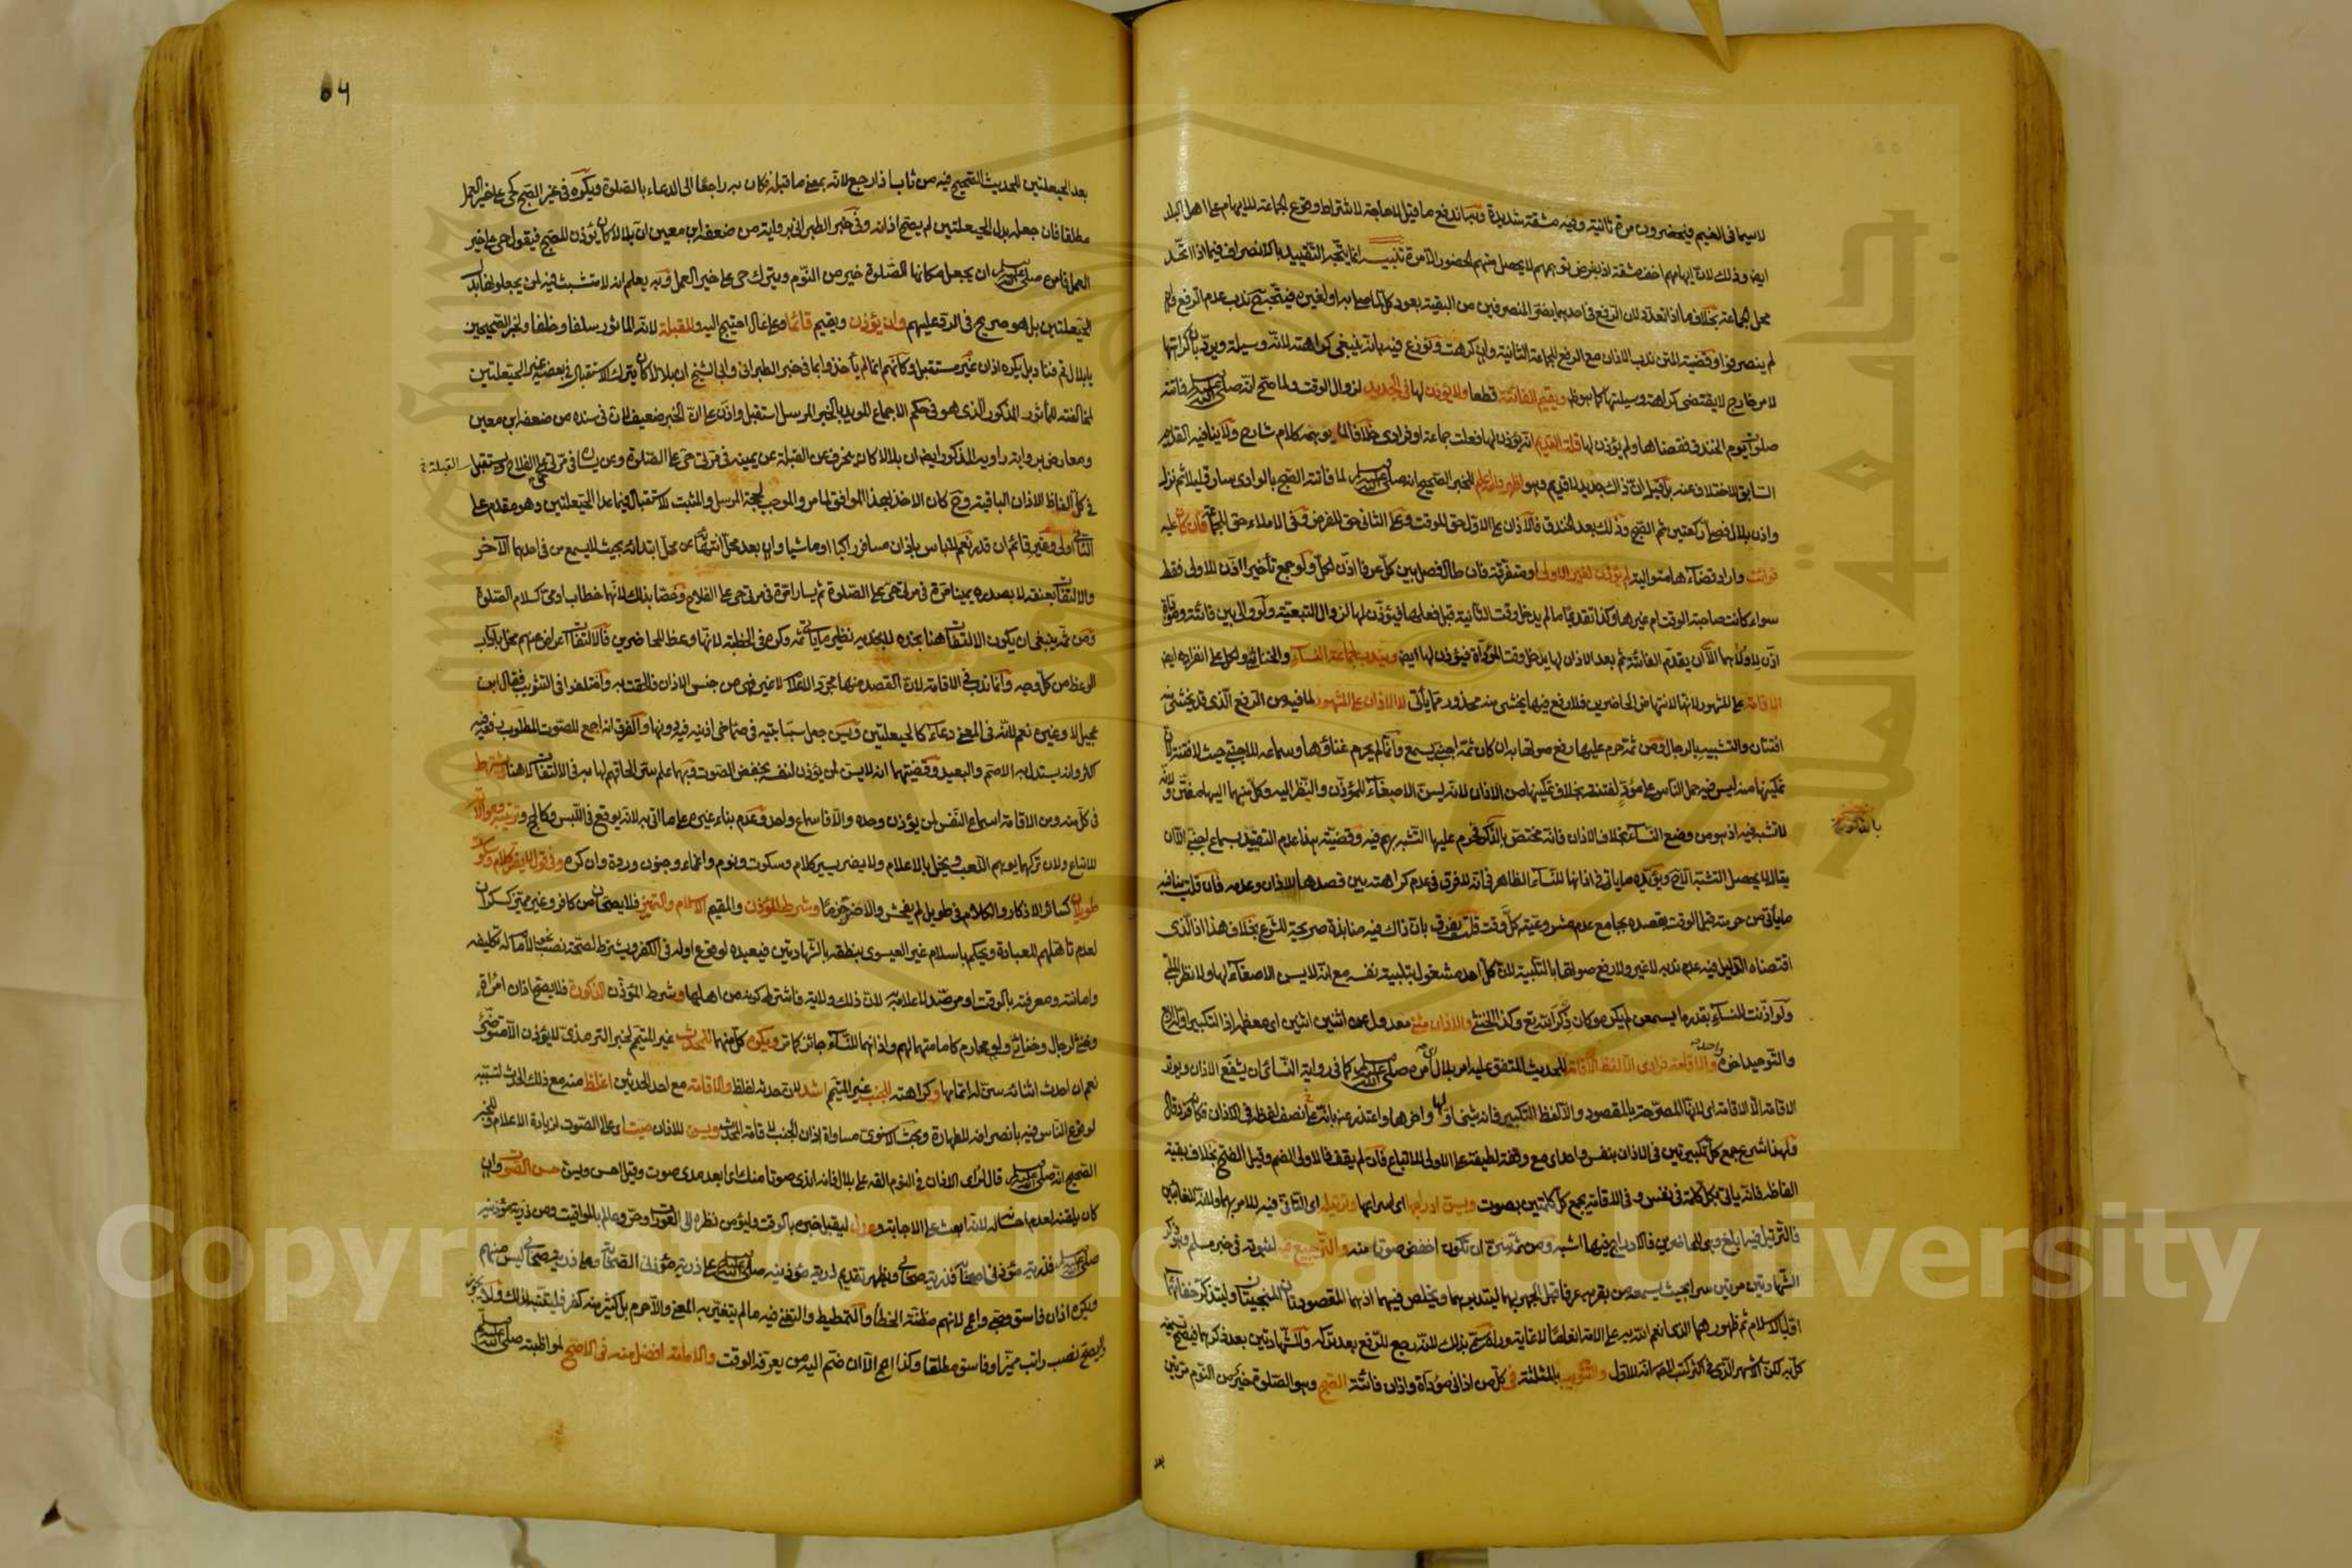 لاسيما فى الغيم فيحضرون مرة ثانية وفيه مشقة شديدة وبهذا اندفع ما قيل لا حاجة لاشتراط وقوع الجماعة للايهام على اهل البلد
ايض وذلك لان ايهامهم اخف مشقة اذ بفرض توهمهم لا يحصل منهم الحضور الا مرة تنبيه انما يتجه التقييد بالانصراف فيما اذا اتحد
محل الجماعة بخلاف ما اذا تعدد لان الرفع فى احدهما يضر المنصرفين من البقية بعود كل لما صلى به او لغيره فيتجه ندب عدم الرفع وان
لم ينصرفوا وقضية المتن ندب الاذان مع الرفع للجماعة الثانية وان كرهت ونوزع فيه بانه ينبغى كراهته لانه وسيلة ويرد بان كراهتها
لامر خارج لا يقتضى كراهة وسيلتها كما هو ظ ويقيم للفائتة قطعا ولا يؤذن لها فى الجديد لزوال الوقت ولما صح انه صلى الله عليه وسلم فاتته
صلوات يوم الخندق فقضاها ولم يؤذن لها قلت القديم انه يؤذن لها فعلت جماعة او فرادى خلافا لما يوهمه كلام شارح ولا ينافيه القديم
السابق للاختلاف عنه بل قيل ان ذاك جديد لا قديم وهو اظهر والله اعلم للخبر الصحيح انه صلى الله عليه وسلم لما فاتته الصبح بالوادى سار قليلا ثم نزل
واذن بلال فصلى ركعتين ثم الصبح وذلك بعد الخندق فالاذان على الاول حق للوقت وعلى الثانى حق للفرض وفى الاملاء حق للجماعة فان كان عليه
فوائت واراد قضاءها متوالية لم يؤذن لغير الاولى او متفرقة فان طال فصل بين كل عرفا اذن لكل ولو جمع تأخيرا اذن للاولى فقط
سواء كانت صاحبة الوقت ام غيرها وكذا تقديما ما لم يدخل وقت الثانية قبل فعلها فيؤذن لها لزوال التبعية ولو والى بين فائتة ومؤداة
اذن لاولاهما الا ان يقدم الفائتة ثم بعد الاذان لها يدخل وقت المؤداة فيؤذن لها ايض ويندب لجماعة النساء والخناثى ولكل على انفراده ايض
الاقامة على المشهور لانها لانتهاض الحاضرين فلا رفع فيها يخشى منه محذور مما يأتى لا الاذان على المشهور لما فيه من الرفع الذى قد يخشى منه
افتتان والتشبه بالرجال ومن ثمة حرم عليها رفع صوتها به ان كان ثمة اجنبى يسمع وانما لم يحرم غناؤها وسماعه للاجنبى حيث لا فتنة لان
تمكينها منه ليس فيه حمل الناس على مؤد لفتنة بخلاف تمكينها من الاذان لانه يسن الاصغاء للمؤذن والنظر اليه وكل منهما اليها مفتن ولانه
لا تشبه فيه اذ هو من وضع النساء بخلاف الاذان فانه مختص بالذكور فحرم عليها التشبه بهم فيه وقضية هذا عدم التقييد بسماع اجنبى الا ان
بالذكور
يقال لا يحصل التشبه الا ح ويؤيده ما ياتى فى اذانها للنساء الظاهر فى انه لا فرق فى عدم كراهته بين قصدها الاذان وعدمه فان قلت ينافيه
ما يأتى من حرمته قبل الوقت بقصده بجامع عدم مشروعية كل وقت قلت يفرق بان ذاك فيه منابذة صريحة للشرع بخلاف هذا اذ الذى
اقتضاه الدليل فيه عدم ندبه لا غير ولا رفع صوتها بالتلبية لان كل احد مشغول بتلبية نفسه مع انه لا يسن الاصغاء لها ولا نظر الملبى
ولو اذنت للنساء بقدر ما يسمعن لم يكره وكان ذكر الله تع وكذا الخنثى والاذان مثنى معدول عن اثنين اثنين اى معظمه اذ التكبير اوله اربع
والتوحيد اخره واحدة والاقامة فرادى الا لفظ الاقامة للحديث المتفق عليه امر بلال اى امره صلى الله عليه وسلم كما فى رواية النسائى ان يشفع الاذان ويوتر
الاقامة الا الاقامة اى لانها المصرحة بالمقصود والا لفظ التكبير فانه يثنى اولها واخرها واعتذر عنه بانه على نصف لفظه فى الاذان فكانه فرد قال
ولهذا شرع جمع كل تكبيرتين فى الاذان بنفس واحد اى مع وقفة لطيفة على الاولى للاتباع فان لم يقف فالاولى الضم وقيل الفتح بخلاف بقية
الفاظه فانه ياتى بكل كلمة فى نفس وفى الاقامة يجمع كل كلمتين بصوت ويسن ادراجها اى اسراعها وترتيله اى التانى فيه للامر بهما ولانه للغائبين
فالترتيل فيه ابلغ وهى للحاضرين فالادراج فيها اشبه ومن ثمة سن ان تكون اخفض صوتا منه والترجيع فيه لثبوته فى خبر مسلم وهو ذكر
الشهادتين مرتين سرا بحيث يسمعه من بقربه عرفا قبل الجهر بهما ليتدبرهما ويخلص فيهما اذ هما المقصودتان المنجيتان وليتذكر خفاءهما
اول الاسلام ثم ظهورهما الذى انعم الله به على الامة انعاما لا غاية وراءه سمى بذلك لانه رجع للرفع بعد تركه والشهادتين بعد ذكرهما فيصح تسمية
كل به لكن الاشهر الذى فى اكثر كتب المص انه للاول والتثويب بالمثلثة فى كل من اذانى مؤداة واذان فائتة الصبح وهو الصلوة خير من النوم مرتين
بعد
بعد الحيعلتين للحديث الصحيح فيه من ثاب اذا رجع لانه بمعنى ما قبله فكان به راجعا الى الدعاء بالصلوة ويكره فى غير الصبح كحى على خير العمل
مطلقا فان جعله بدل الحيعلتين لم يصح اذانه وفى خبر الطبرانى برواية من ضعفه ابن معين ان بلالا كان يؤذن للصبح فيقول حى على خير
العمل فامره صلى الله عليه وسلم ان يجعل مكانها الصلوة خير من النوم ويترك حى على خير العمل وبه يعلم انه لا متشبث فيه لمن يجعلونها بدل
الحيعلتين بل هو صريح فى الرد عليهم وان يؤذن ويقيم قائما وعلى عال احتيج اليه وللقبلة لانه الماثور سلفا وخلفا ولخبر الصحيحين
يا بلال قم فناد بل يكره اذان غير مستقبل وكانهم انما لم يأخذوا بما فى خبر الطبرانى وابى الشيخ ان بلالا كان يترك الاستقبال فى بعضه غير الحيعلتين
لمخالفته للمأثور المذكور الذى هو فى حكم الاجماع المؤيد بالخبر المرسل استقبل واذن على ان الخبر ضعيف لان فى سنده من ضعفه ابن معين
ومعارض برواية راويه المذكور ايض ان بلالا كان ينحرف عن القبلة عن يمينه فى مرتى حى على الصلوة وعن يساره فى مرتى حى على الفلاح ويستقبل القبلة
فى كل الفاظ الاذان الباقية وح كان الاخذ بهذا الموافق لما مر والموجب لحجية المرسل والمثبت للاستقبال فيما عدا الحيعلتين وهو مقدم على
النافى اولى وغير قائم ان قدر نعم لا باس باذان مسافر راكبا او ماشيا وان بعد محل انتهائه عن محل ابتدائه بحيث لا يسمع من فى احدهما الآخر
والالتفات بعنقه لا بصدره يمينا مرة فى مرتى حى على الصلوة ثم يسارا مرة فى مرتى حى على الفلاح وخصا بذلك لانهما خطاب ادمى كسلام الصلوة
ومن ثمة ينبغى ان يكون الالتفات هنا بخده لا بخديه نظير ما ياتى ثمة وكره فى الخطبة لانها وعظ للحاضرين فالالتفات اعراض عنهم مخل بآداب
الوعظ من كل وجه وانما ندب فى الاقامة لان القصد منها مجرد الاعلام لا غير فهى من جنس الاذان فالحقت به واختلفوا فى التثويب فقال ابن
عجيل لا وغيره نعم لانه فى المعنى دعاء كالحيعلتين ويسن جعل سبابتيه فى صماخى اذنيه فيه دونها والفرق انه اجمع للصوت المطلوب رفعه فيه
اكثر وانه يستدل به الاصم والبعيد وقضيتهما انه لا يسن لمن يؤذن لنفسه بخفض الصوت وبهما علم سر الحاقهم لها به فى الالتفات لا هنا وشرط
فى كل منه ومن الاقامة اسماع النفس لمن يؤذن وحده والا فاسماع واحد وعدم بناء غيره على ما اتى به لانه يوقع فى اللبس وكالحج وترتيبه وموالاته
للاتباع ولان تركهما يوهم اللعب ويخل بالاعلام ولا يضر يسير كلام وسكوت ونوم واغماء وجنون وردة وان كره وفى قول لا يضر كلام وسكوت
طويلان كسائر الاذكار والكلام فى طويل لم يفحش والا ضر جزما وشرط المؤذن والمقيم الاسلام والتمييز فلا يصحان من كافر وغير مميز كسكران
لعدم تاهلهم للعبادة ويحكم باسلام غير العيسوى بنطقه بالشهادتين فيعيده لوقوع اوله فى الكفر ويشترط لصحة نصب نحو الامام له تكليفه
وامانته ومعرفته بالوقت او مرصد لاعلامه لان ذلك ولاية فاشترط كونه من اهلها وشرط المؤذن الذكورة فلا يصح اذان امرأة
وخنثى لرجال وخناثى ولو محارم كامامتهما لهم واذانهما للنساء جائز كما مر ويكره كل منهما للمحدث غير المتيمم لخبر الترمذى لا يؤذن الا متوضئ
نعم ان احدث اثنائه سن له اتمامه وكراهته للجنب غير المتيمم اشد لان حدثه اغلظ والاقامة مع احد الحدثين اغلظ منه مع ذلك الحدث لتسببه
لوقوع الناس فيه بانصرافه للطهارة وبحث الاسنوى مساواة اذان الجنب لاقامة المحدث ويسن للاذان صيت اى عالى الصوت لزيادة الاعلام وللخبر
الصحيح انه صلى الله عليه وسلم قال لرائى الاذان فى النوم القه على بلال فانه اندى صوتا منك اى ابعد مدى صوت وقيل احسن ويسن حسن الصوت وان
كان يلقنه لعدم احسانه له لانه ابعث على الاجابة وعدل ليقبل خبره بالوقت وليؤمن نظره الى العورات وحر وعالم بالمواقيت ومن ذرية مؤذنيه
صلى الله عليه وسلم فذرية مؤذنى اصحابه فذرية صحابى ويظهر تقديم ذرية مؤذنيه صلى الله عليه وسلم على ذرية مؤذنى الصحابة وعلى ذرية صحابى ليس منهم
ويكره اذان فاسق وصبى واعمى لانهم مظنة الخطأ والتمطيط والتغنى فيه ما لم يتغير به المعنى والا حرم بل كثير منه كفر فليتنبه لذلك ولا يجوز
ولا يصح نصب راتب مميز او فاسق مطلقا وكذا اعمى الا ان ضم اليه من يعرفه الوقت والامامة افضل منه فى الاصح لمواظبته صلى الله عليه وسلم